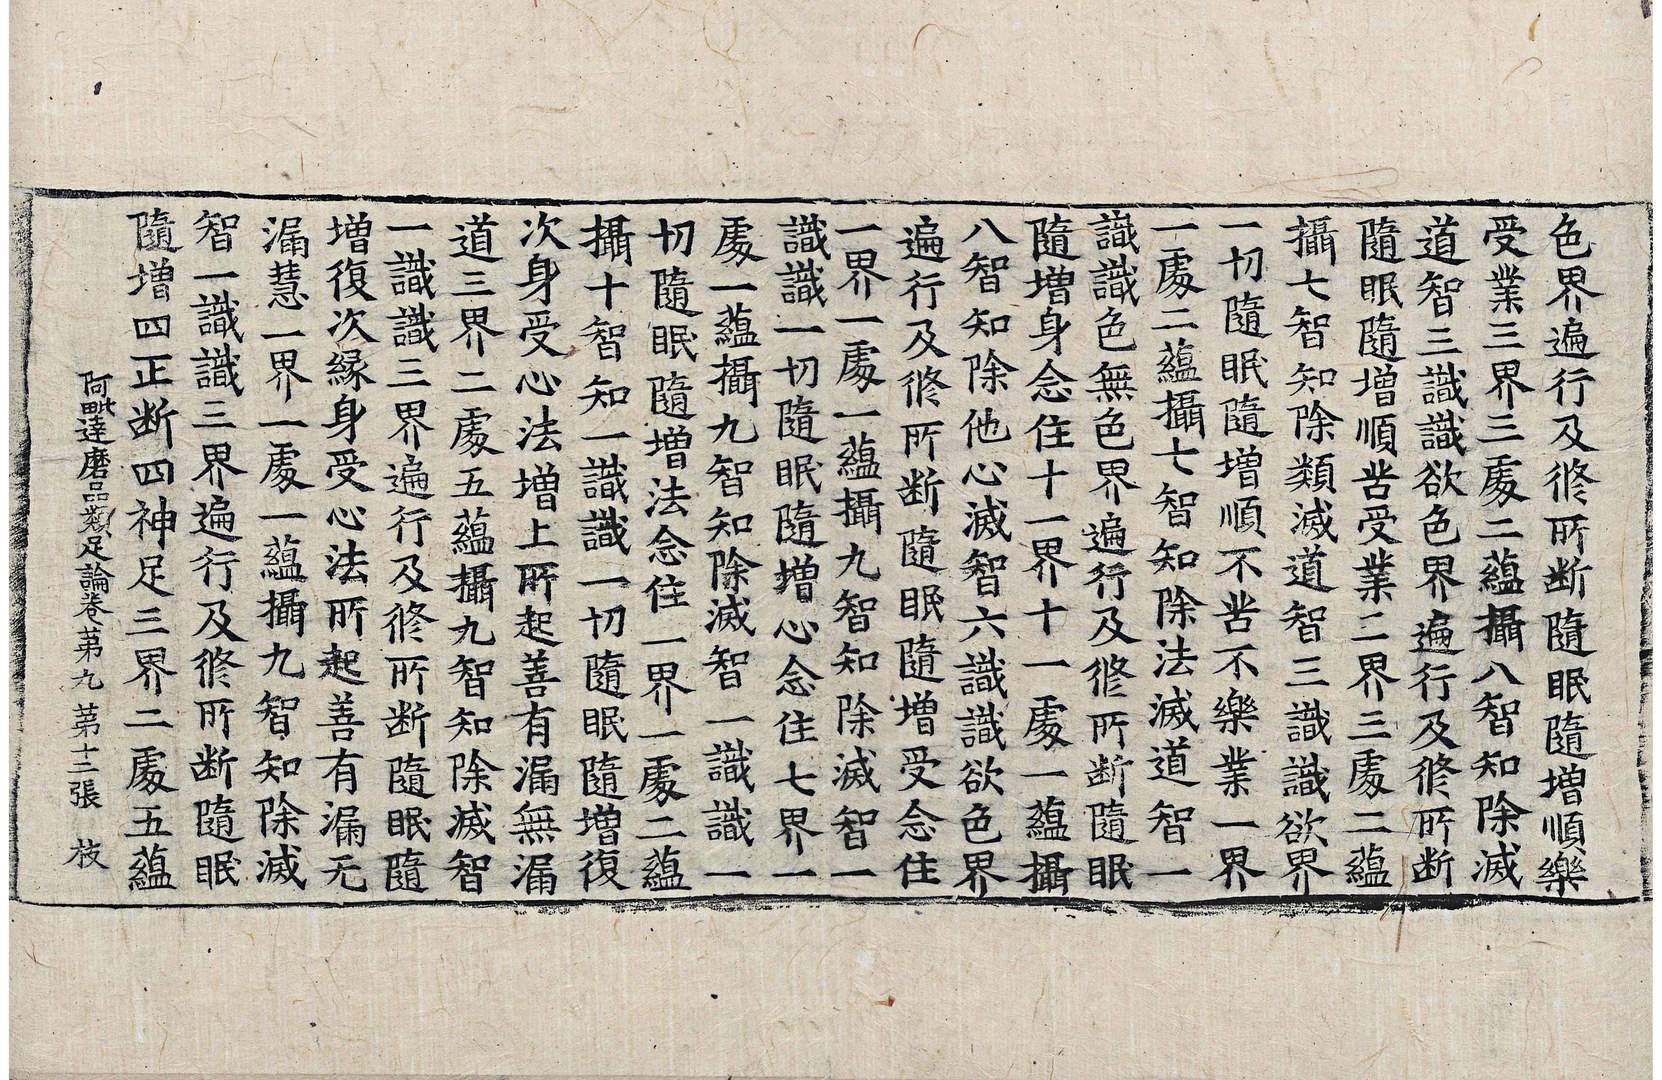 色界遍行及修所断隨眠隨增順樂
受業三界三處二蘊攝八智知除滅
道智三識識欲色界遍行及修所断
隨眠隨增順苦受業二界三處二蘊
攝七智知除類滅道智三識識欲界
一切隨眠隨增順不苦不樂業一界
一處二蘊攝七智知除法滅道智一
識識色無色界遍行及修所断隨眠
隨增身念住十一界十一處一蘊攝
八智知除他心滅智六識識欲色界
遍行及修所断隨眠隨增受念住
一界一處一蘊攝九智知除滅智一
識識一切隨眠隨增心念住七界一
處一蘊攝九智知除滅智一識識一
切隨眠隨增法念住一界一處二蘊
攝十智知一識識一切隨眠隨增復
次身受心法增上所起善有漏無漏
道三界二處五蘊攝九智知除滅智
一識識三界遍行及修所断隨眠隨
增復次緣身受心法所起善有漏无
漏慧一界一處一蘊攝九智知除滅
智一識識三界遍行及修所断隨眠
隨增四正断四神足三界二處五蘊
阿毗達磨品類足論卷第九 第十三張 枝